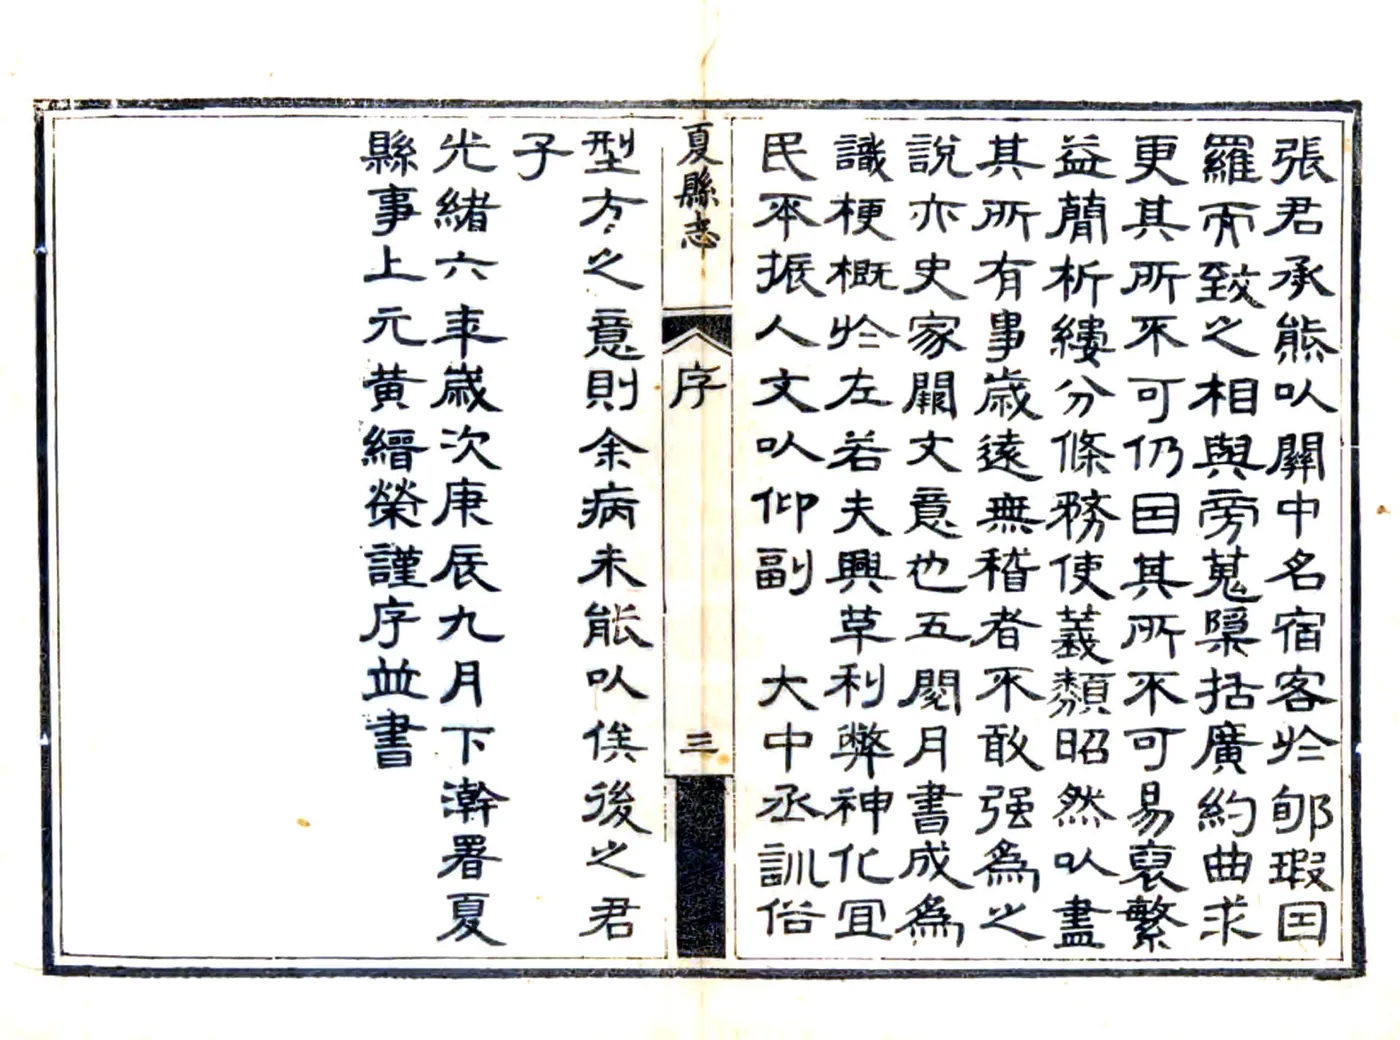 張君承熊以關中名宿客於郇瑕因
羅而致之相與旁蒐檃括廣約曲求
更其所不可仍因其所不可易裒繁
益簡析縷分條務使義類昭然以盡
其所有事歲遠無稽者不敢强為之
說亦史家闕文意也五閱月書成為
識梗概於左若夫興革利弊神化宜
民不振人文以仰副 大中丞訓俗
夏縣志
序
三
型方之意則余病未能以俟後之君
子
光緒六年歲次庚辰九月下澣署夏
縣事上元黃縉榮謹序並書